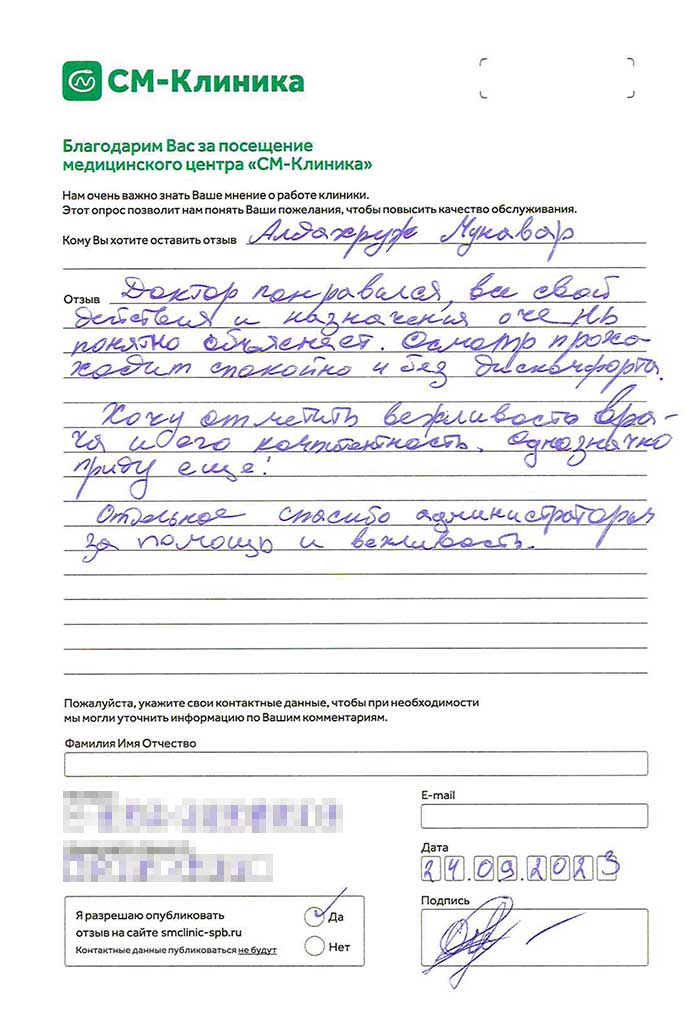 СМ-Клиника
Благодарим Вас за посещение
медицинского центра «СМ-Клиника»
Нам очень важно знать Ваше мнение о работе клиники.
Этот опрос позволит нам понять Ваши пожелания, чтобы повысить качество обслуживания.
Кому Вы хотите оставить отзыв Алдахруж Мунавар
Отзыв Доктор понравился, все свои
действия и назначения очень
понятно объясняет. Осмотр прохо-
ходит спокойно и без дискомфорта.
Хочу отметить вежливость вра-
ча и его компитентность. Однозначно
приду еще!
Отдельное спасибо администраторам
за помощь и вежливость.
Пожалуйста, укажите свои контактные данные, чтобы при необходимости
мы могли уточнить информацию по Вашим комментариям.
Фамилия Имя Отчество
E-mail
Дата
24.09.2023
Подпись
Я разрешаю опубликовать
отзыв на сайте smclinic-spb.ru
Контактные данные публиковаться не будут
Да
Нет